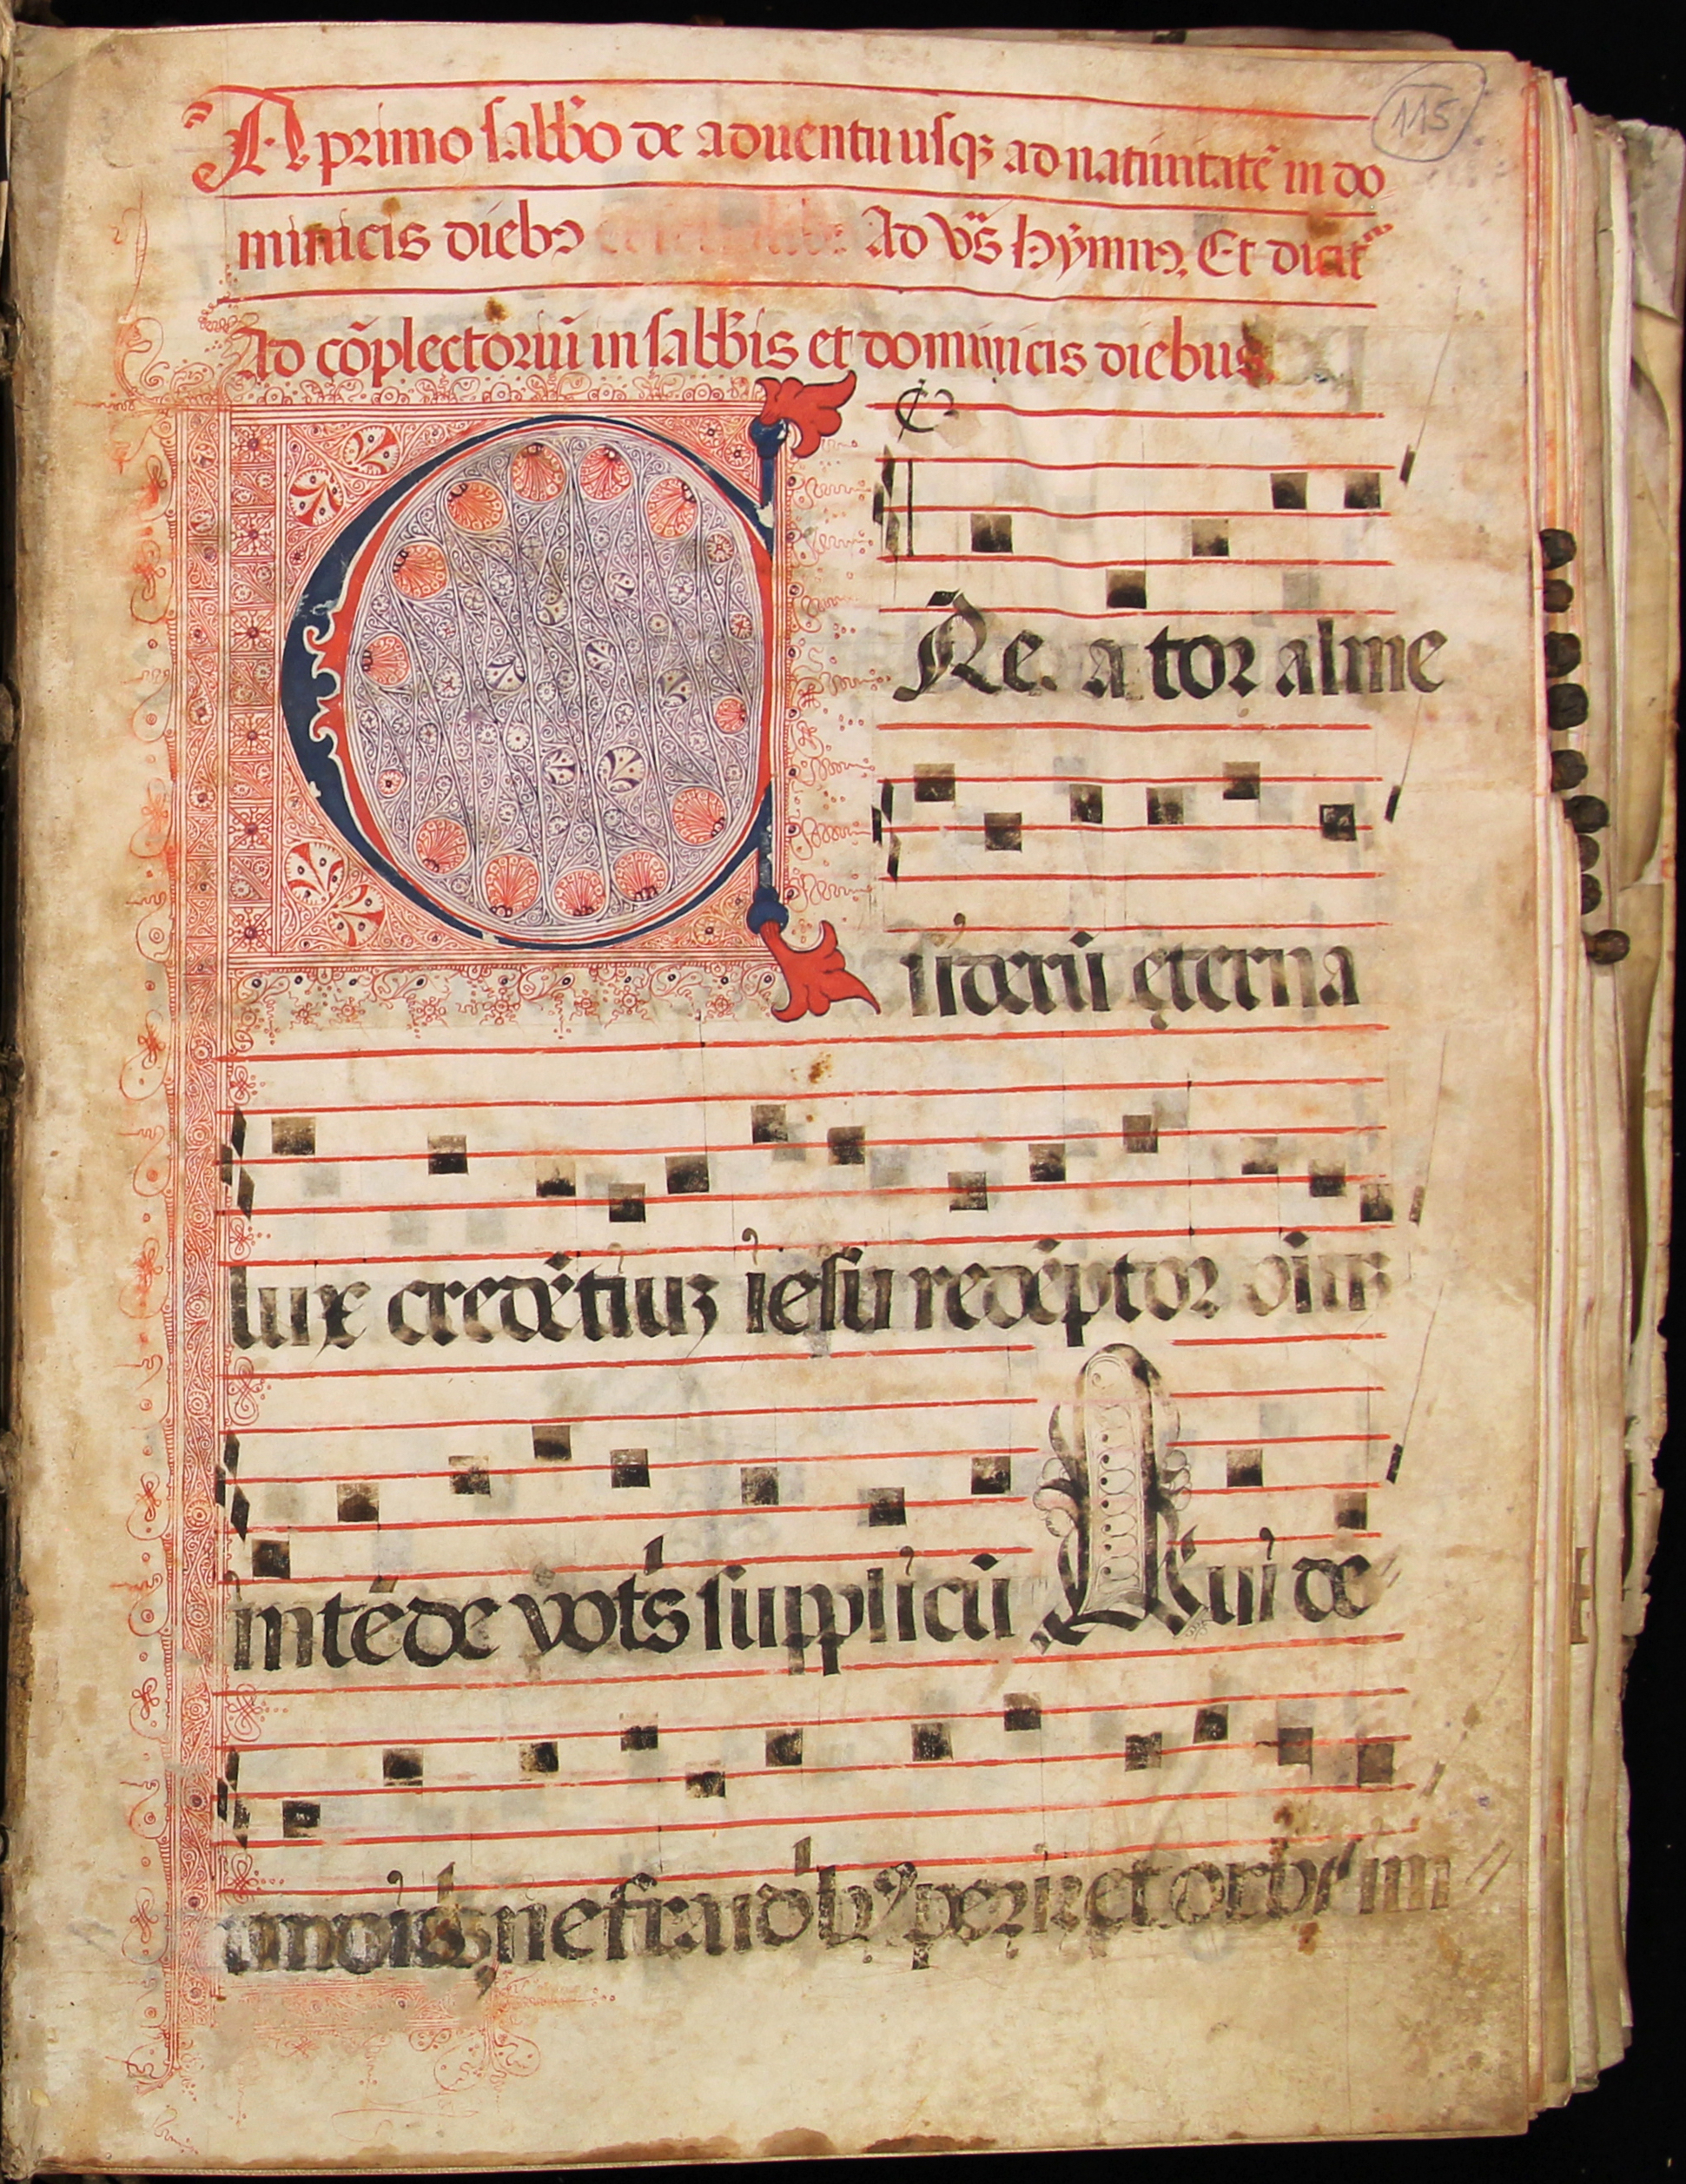 115
A primo sabb̄o de aduentu usqȝ ad natiuitatē in do
minicis diebꝯ Ad vs̄ hÿmnꝯ. Et dicit᷑
Ad cōplectoriū in sabb̄is et dominicis diebus.
CRe a tor alme
siderū eterna
lux credētiuȝ iesu redēptor oīuȝ
intēde votis supplicū Qui de
ne fraudibꝰ periret orbis im